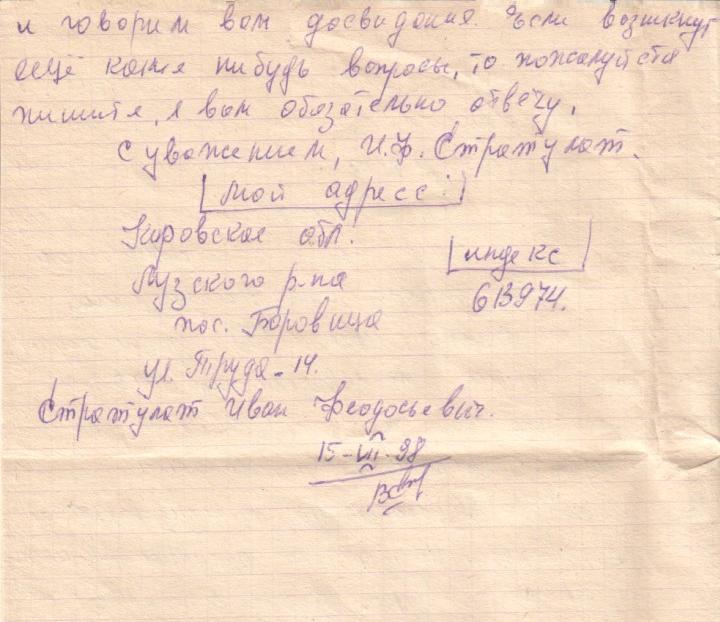 и говорим вам досвидания. Если возникнут
ещё какие нибудь вопросы, то пожалуйста
пишите, я вам обязательно отвечу.
С уважением, И.Ф. Стратулат.
Мой адресс:
Кировская обл.
индекс
Лузского р-на
613974.
пос. Боровица
ул. Труда-14.
Стратулат Иван Феодосьевич.
15-VII-98